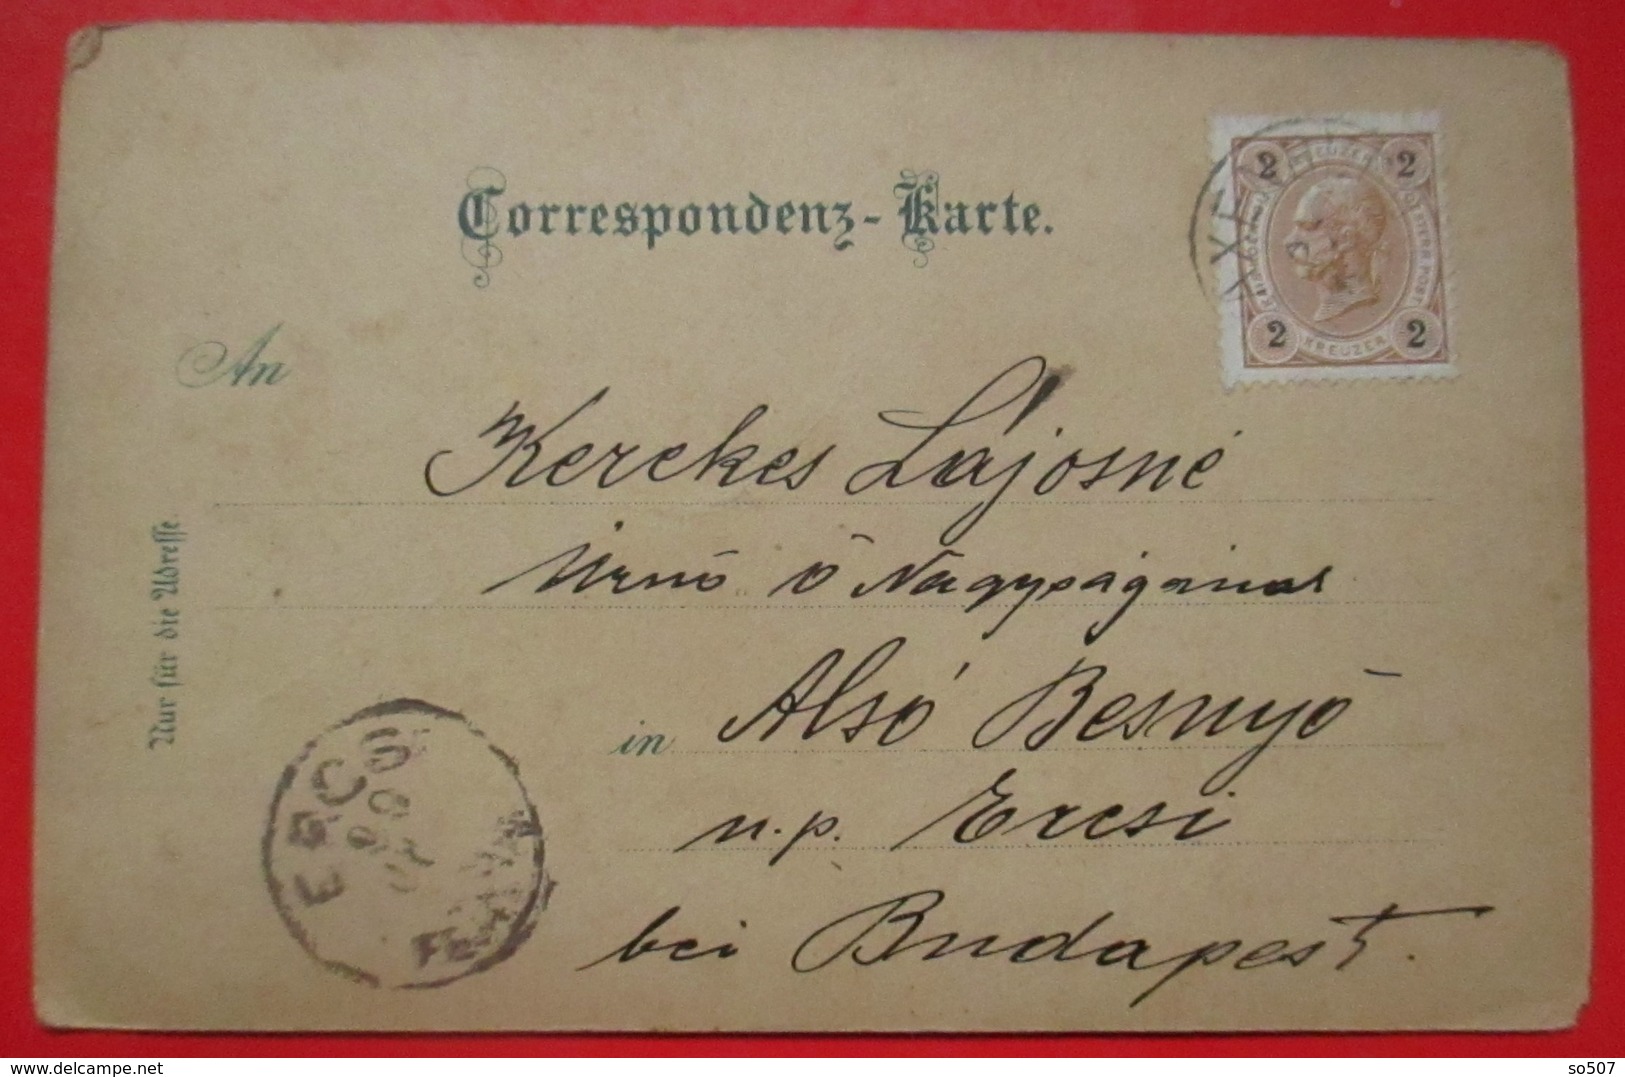 Correspondenz-Karte.
2 KREUZER 2
2 KREUZER 2
An
Kerekes Lájosné
Úrnő ő Nagyságának
in Alsó Besnyő
u.p. Ercsi
bei Budapest.
Nur für die Adresse.
ERCSI
FEJÉR
delcampe.net
so507